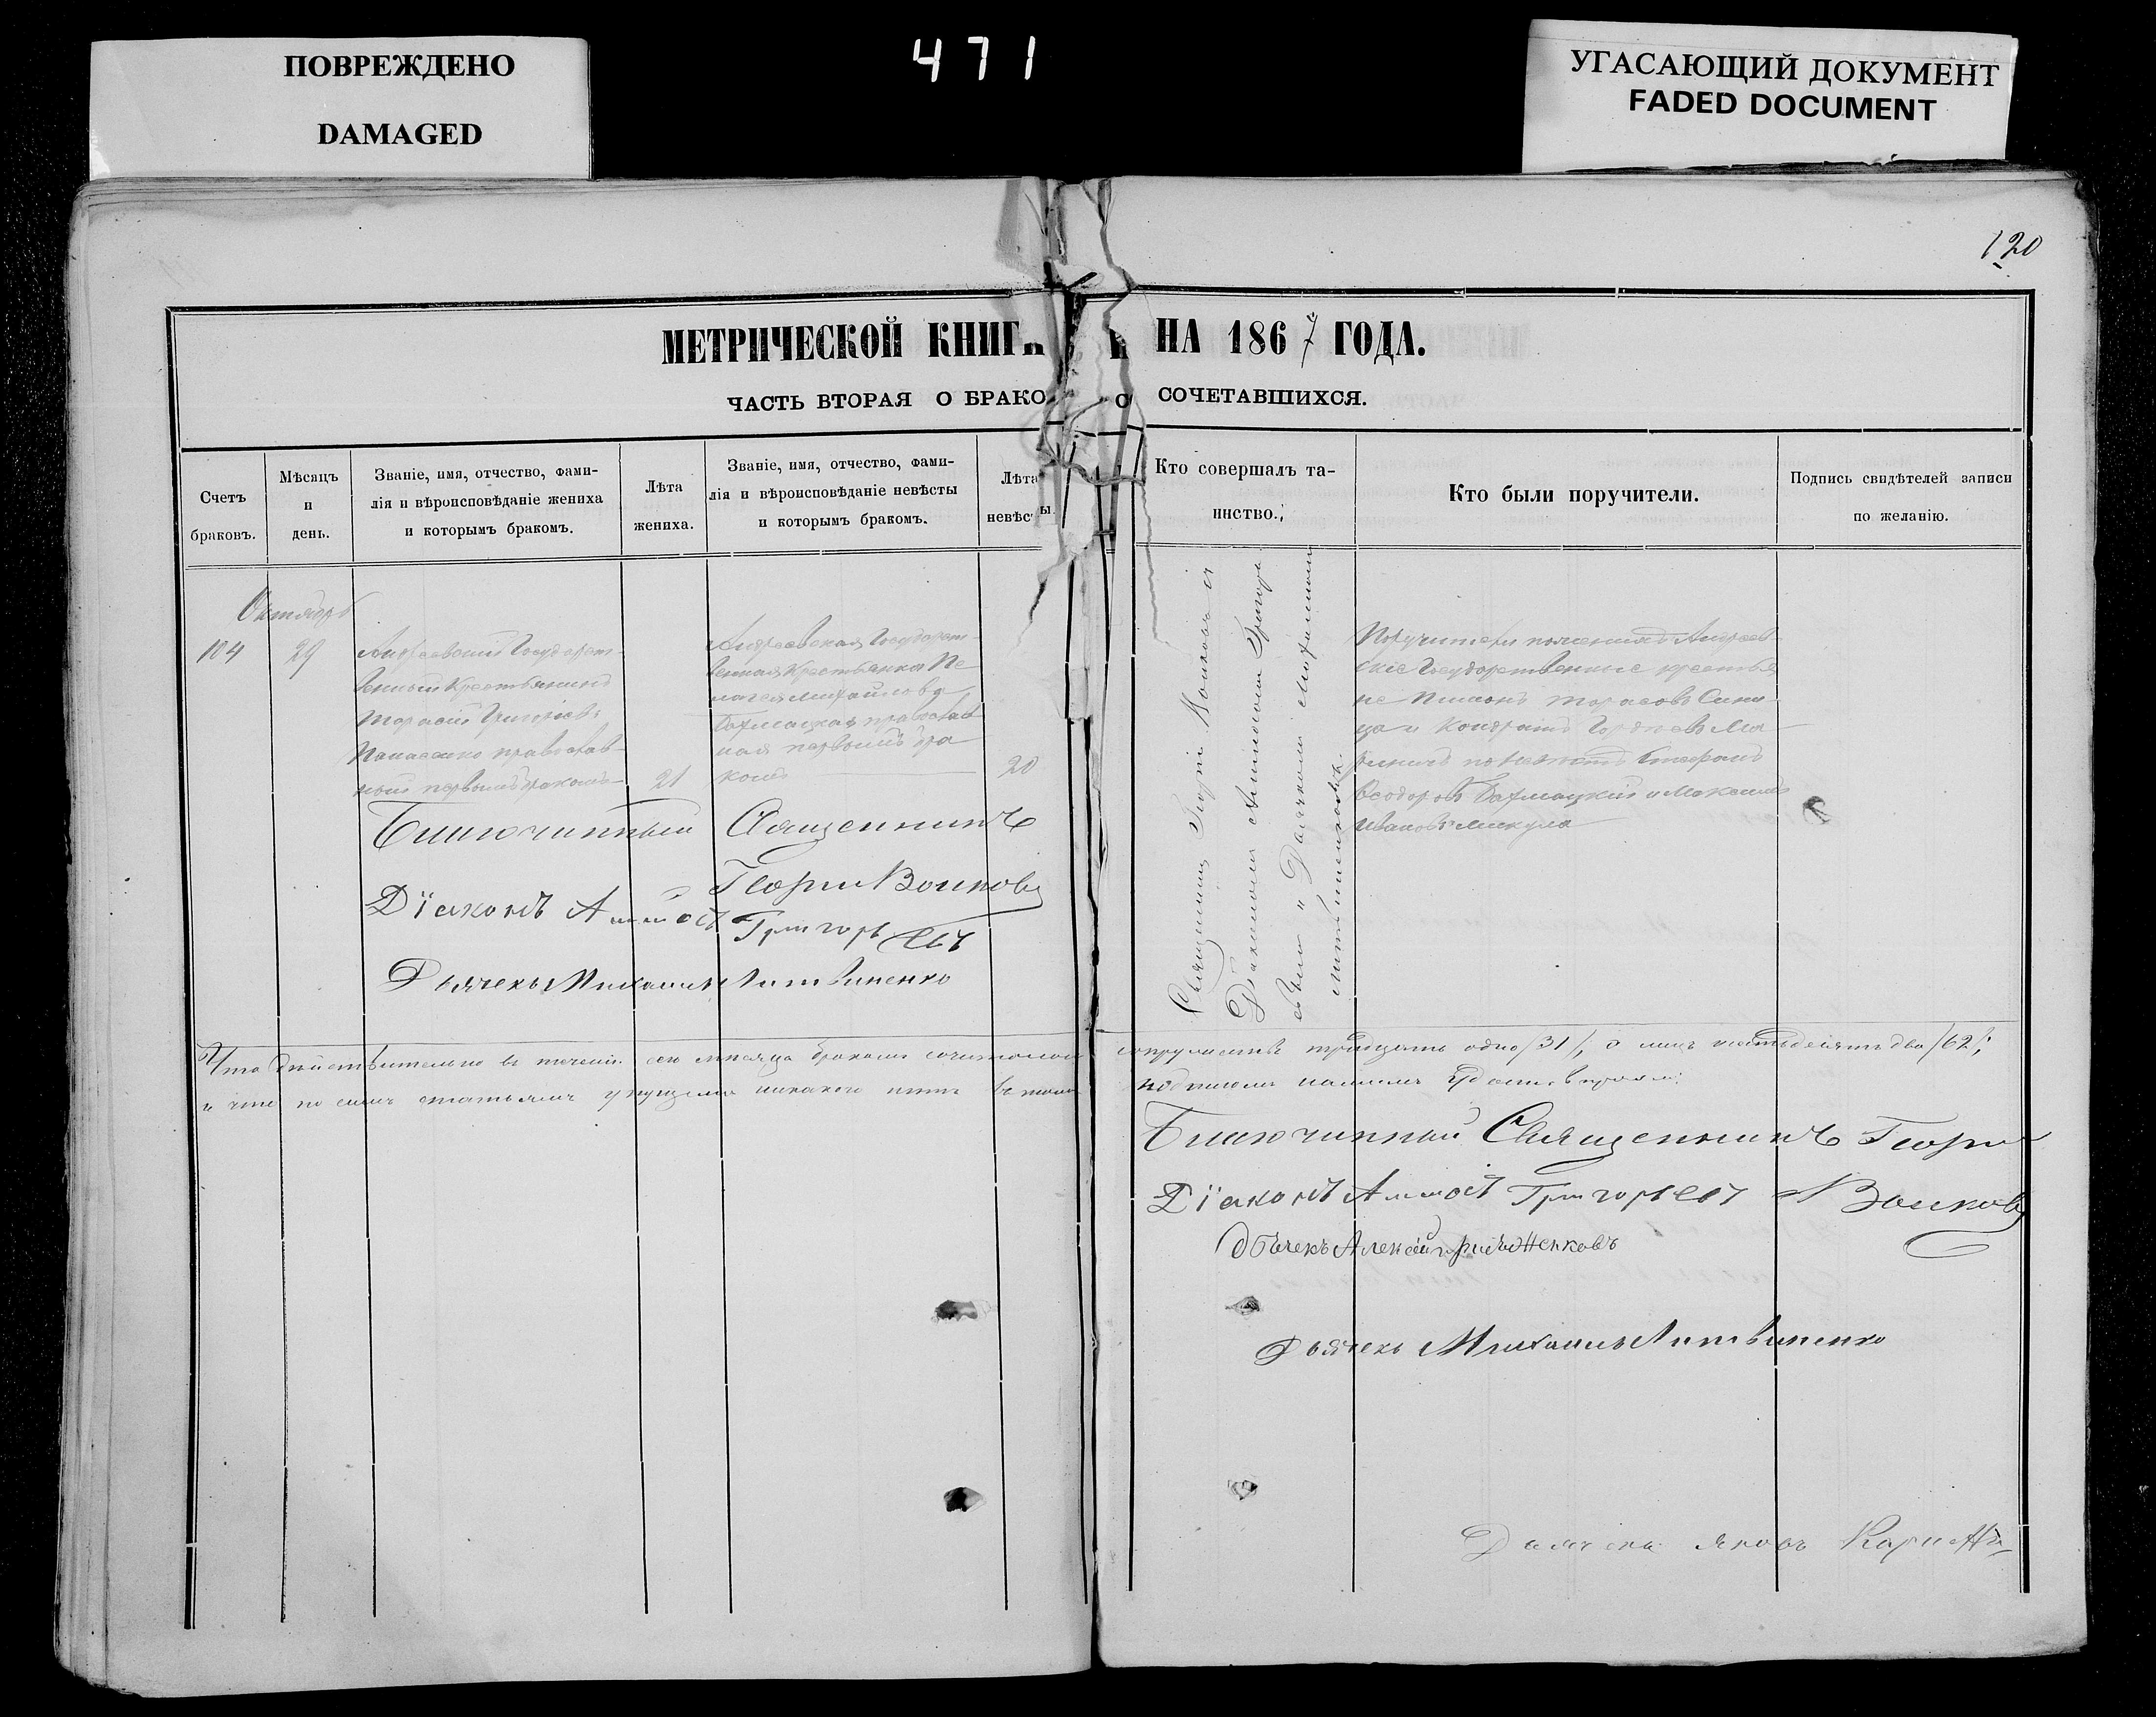 ПОВРЕЖДЕНО
DAMAGED
471
УГАСАЮЩИЙ ДОКУМЕНТ
FADED DOCUMENT
120
МЕТРИЧЕСКОЙ КНИГ НА 1867 ГОДА.
ЧАСТЬ ВТОРАЯ О БРАКО СОЧЕТАВШИХСЯ.
Счетъ
браковъ.
Мѣсяцъ
и
день.
Званіе, имя, отчество, фами-
лія и вѣроисповѣданіе жениха
и которымъ бракомъ.
Лѣта
жениха.
Званіе, имя, отчество, фами-
лія и вѣроисповѣданіе невѣсты
и которымъ бракомъ.
Лѣта
невѣсты.
Кто совершалъ та-
инство.
Кто были поручители.
Подпись свидѣтелей записи
по желанію.
Октябрь
104
29
Андреевскій Государст-
венный Крестьянинъ
Тарасій Григоріевъ
Панасенко православ-
ный первымъ бракомъ
21
Андреевская Государст-
венная Крестьянка Пе
лагея Михайлова
Бахмацкая православ
ная первымъ бра
комъ
20
Священникъ Георгій Волковъ съ
Діакономъ Аммосомъ Григорье
вымъ и Дьячкомъ Михаиломъ
Литвиненкомъ.
Поручители по женихѣ Андреев
скіе Государственные крестья
не Пимонъ Тарасовъ Сини
ца и Кондратъ Гордѣевъ
по невѣстѣ Стефанъ
Ѳеодоровъ Бахмацкій и Максимъ
Ивановъ Микула
Благочинный Священникъ
Георгій Волковъ
Діаконъ Аммосъ Григорьевъ
Дьячекъ Михаилъ Литвиненко
Что дѣйствительно въ теченіи сего мѣсяца бракомъ сочеталось супружествъ тридцать одно /31/, а лицъ шестьдесятъ два /62/;
и что по симъ статьямъ упущенія никакого нѣтъ въ томъ подписомъ нашимъ удостовѣряемъ:
Благочинный Священникъ Георгій
Волковъ
Діаконъ Аммосъ Григорьевъ
Дьячекъ Алексѣй
Дьячекъ Михаилъ Литвиненко
Дьячекъ Яковъ